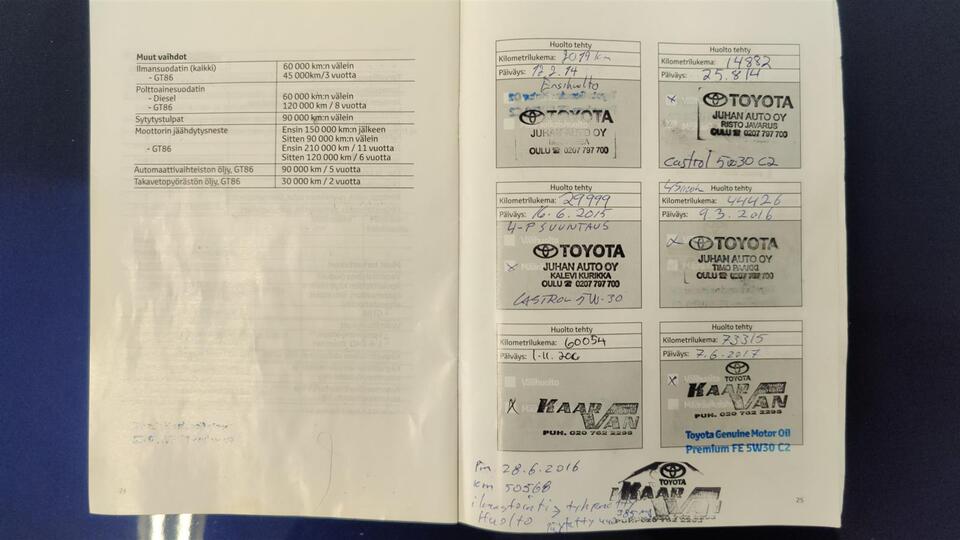 Muut vaihdot
Ilmansuodatin (kaikki) 60 000 km:n välein
- GT86 45 000km/3 vuotta
Polttoainesuodatin
- Diesel 60 000 km:n välein
- GT86 120 000 km / 8 vuotta
Sytytystulpat 90 000 km:n välein
Moottorin jäähdytysneste Ensin 150 000 km:n jälkeen
Sitten 90 000 km:n välein
- GT86 Ensin 210 000 km / 11 vuotta
Sitten 120 000 km / 6 vuotta
Automaattivaihteiston öljy, GT86 90 000 km / 5 vuotta
Takavetopyörästön öljy, GT86 30 000 km / 2 vuotta
Huolto tehty
Kilometrilukema: km
Päiväys: 12.2.14
Ensihuolto
TOYOTA
JUHAN AUTO OY
OULU ☎ 0207 797 700
Huolto tehty
Kilometrilukema: 14882
Päiväys: 25.8.14
x
TOYOTA
JUHAN AUTO OY
RISTO JAVARUS
OULU ☎ 0207 797 700
Castrol 5W30 C2
Huolto tehty
Kilometrilukema: 29999
Päiväys: 16.6.2015
4-P SUUNTAUS
x
TOYOTA
JUHAN AUTO OY
KALEVI KURIKKA
OULU ☎ 0207 797 700
CASTROL 5W-30
Huolto tehty
Kilometrilukema: 44426
Päiväys: 9.3.2016
x
TOYOTA
JUHAN AUTO OY
TIMO
OULU ☎ 0207 797 700
Huolto tehty
Kilometrilukema: 60054
Päiväys: 1.11.206
Välihuolto
X
KAARVAN
PUH. 020 762 2295
Huolto tehty
Kilometrilukema: 73315
Päiväys: 7.6.2017
x
TOYOTA
KAARVAN
PUH. 020 762 2295
Toyota Genuine Motor Oil
Premium FE 5W30 C2
Pm 28.6.2016
km 50568
ilmastointi tyhjennetty
Huolto täytetty
TOYOTA
KAARVAN
25